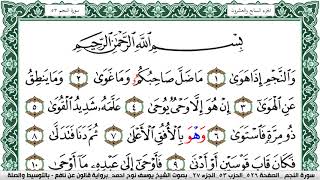 الجزء السابع والعشرون
سورة النجم ٥٣
بِسْمِ اللَّهِ الرَّحْمَٰنِ الرَّحِيمِ
وَالنَّجْمِ إِذَا هَوَىٰ ١ مَا ضَلَّ صَاحِبُكُمُۥ وَمَا غَوَىٰ ٢ وَمَا يَنطِقُ
عَنِ الْهَوَىٰ ٣ إِنْ هُوَ إِلَّا وَحْيٌ يُوحَىٰ ٤ عَلَّمَهُۥ شَدِيدُ الْقُوَىٰ ٥
ذُو مِرَّةٍ فَاسْتَوَىٰ ٦ وَهْوَ بِالْأُفُقِ الْأَعْلَىٰ ٧ ثُمَّ دَنَا فَتَدَلَّىٰ ٨
فَكَانَ قَابَ قَوْسَيْنِ أَوْ أَدْنَىٰ ٩ فَأَوْحَىٰ إِلَىٰ عَبْدِهِۦ مَا أَوْحَىٰ ١٠
سورة النجم - الصفحة ٥٢٦ - الحزب ٥٣ - الجزء ٢٧ - بصوت الشيخ يوسف نوح احمد - برواية قالون عن نافع - بالتوسط والصلة